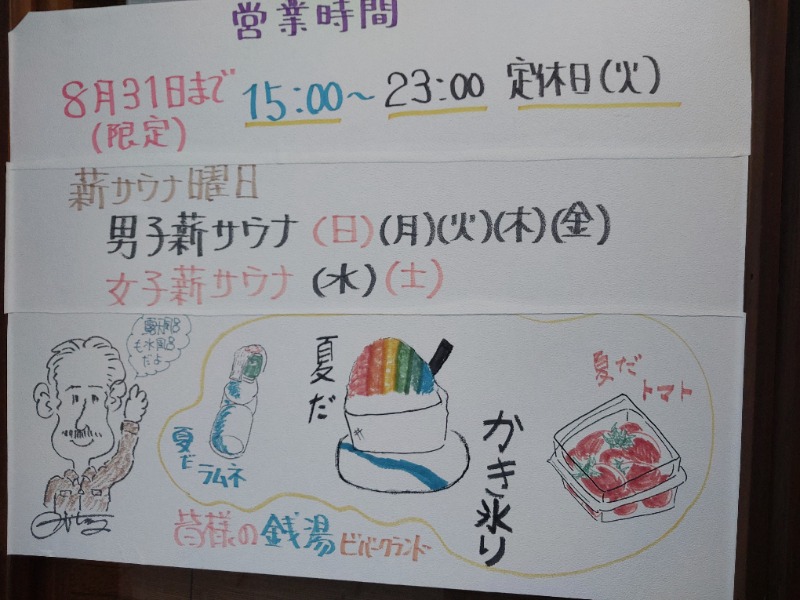 営業時間
8月31日まで 15:00～23:00 定休日(火)
(限定)
薪サウナ曜日
男子薪サウナ (日)(月)(火)(木)(金)
女子薪サウナ (水)(土)
も水風呂
だよ
夏だ
ラムネ
夏だ
かき氷り
夏だ
トマト
皆様の銭湯 ビバークランド